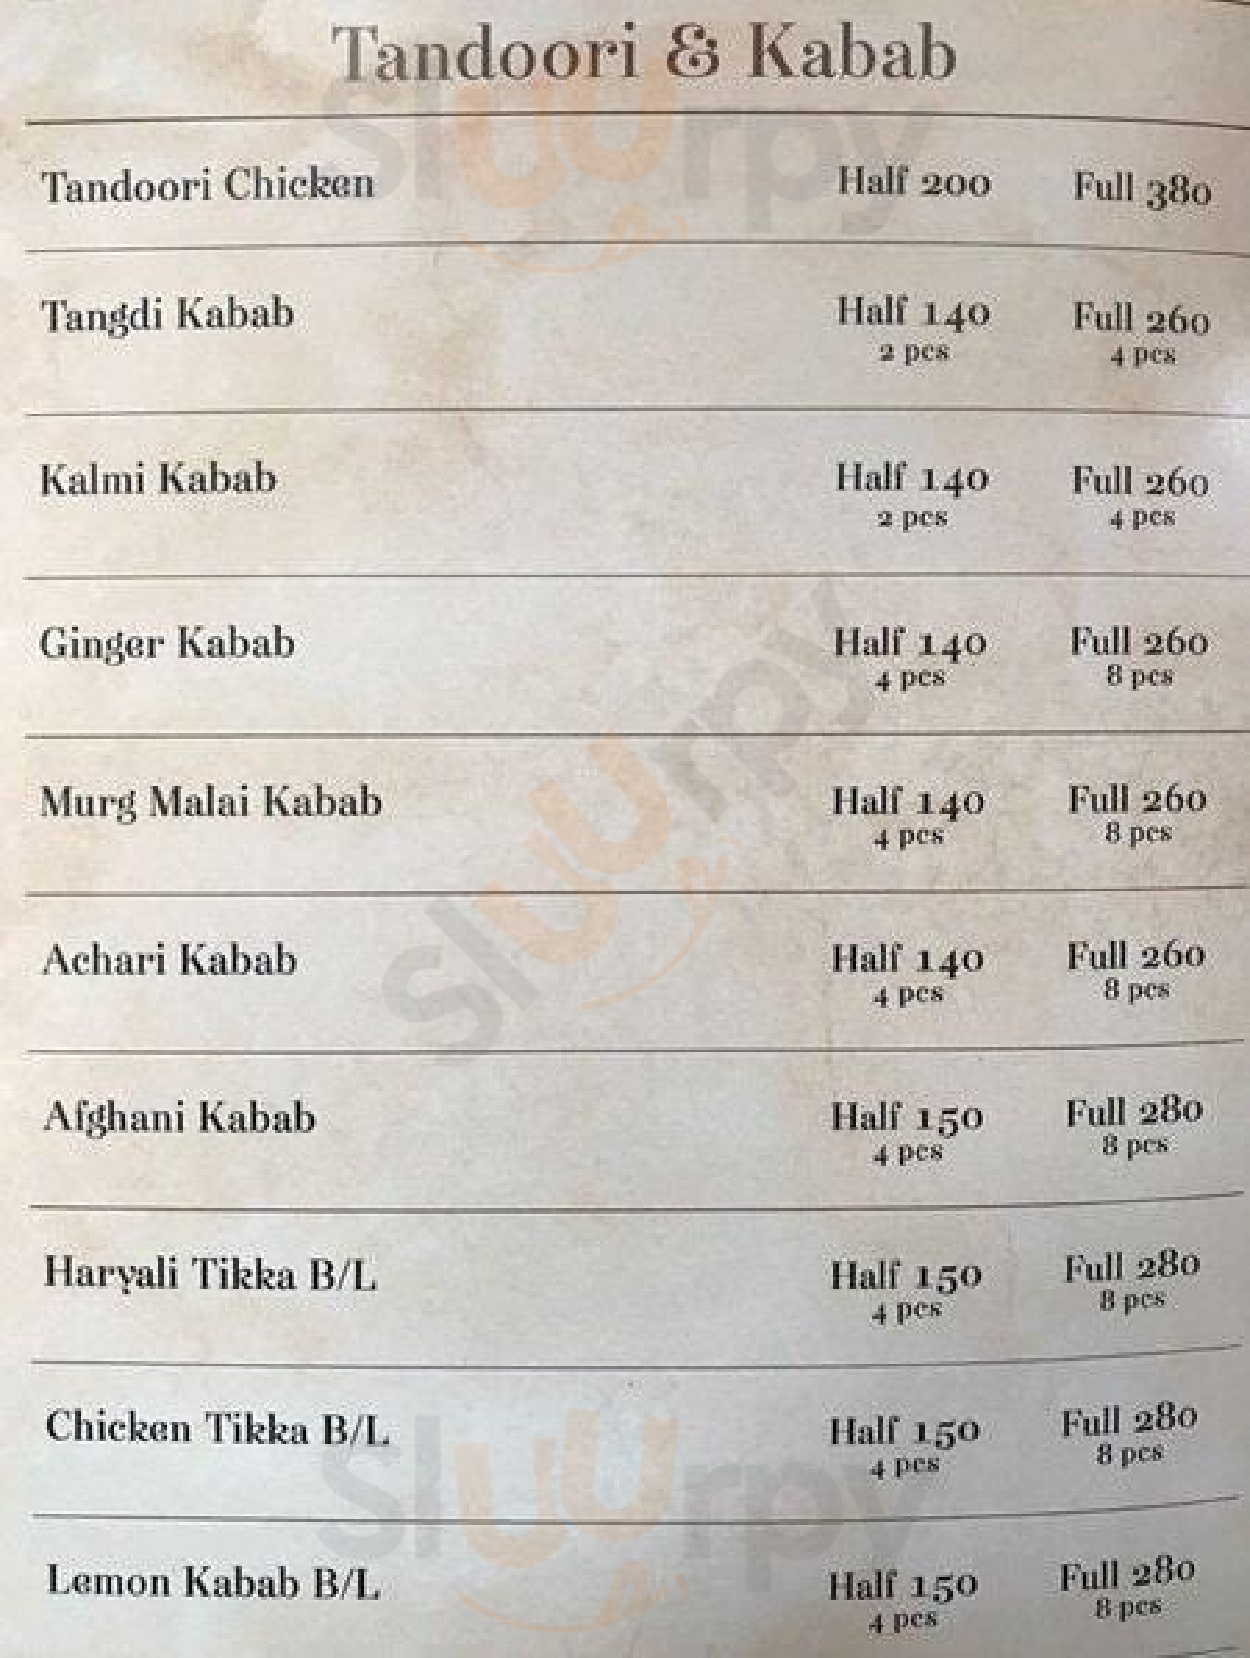 Tandoori & Kabab
Tandoori Chicken Half 200 Full 380
Tangdi Kabab Half 140 Full 260
2 pcs 4 pcs
Kalmi Kabab Half 140 Full 260
2 pcs 4 pcs
Ginger Kabab Half 140 Full 260
4 pcs 8 pcs
Murg Malai Kabab Half 140 Full 260
4 pcs 8 pcs
Achari Kabab Half 140 Full 260
4 pcs 8 pcs
Afghani Kabab Half 150 Full 280
4 pcs 8 pcs
Haryali Tikka B/L Half 150 Full 280
4 pcs 8 pcs
Chicken Tikka B/L Half 150 Full 280
4 pcs 8 pcs
Lemon Kabab B/L Half 150 Full 280
4 pcs 8 pcs
sluurpy
sluurpy
sluurpy